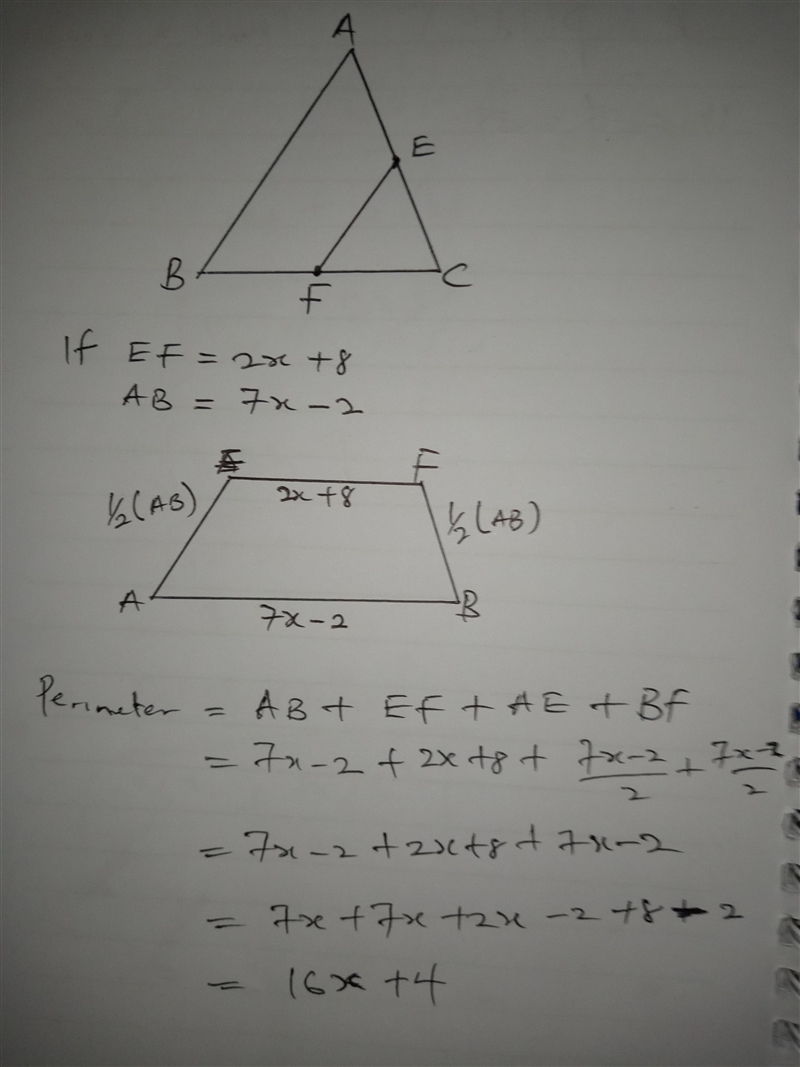 A
E
B
F
C
If EF = 2x + 8
AB = 7x - 2
F
½(AB)
2x + 8
½(AB)
A
7x - 2
B
Perimeter = AB + EF + AE + BF
= 7x - 2 + 2x + 8 + (7x - 2)/2 + (7x - 2)/2
= 7x - 2 + 2x + 8 + 7x - 2
= 7x + 7x + 2x - 2 + 8 - 2
= 16x + 4